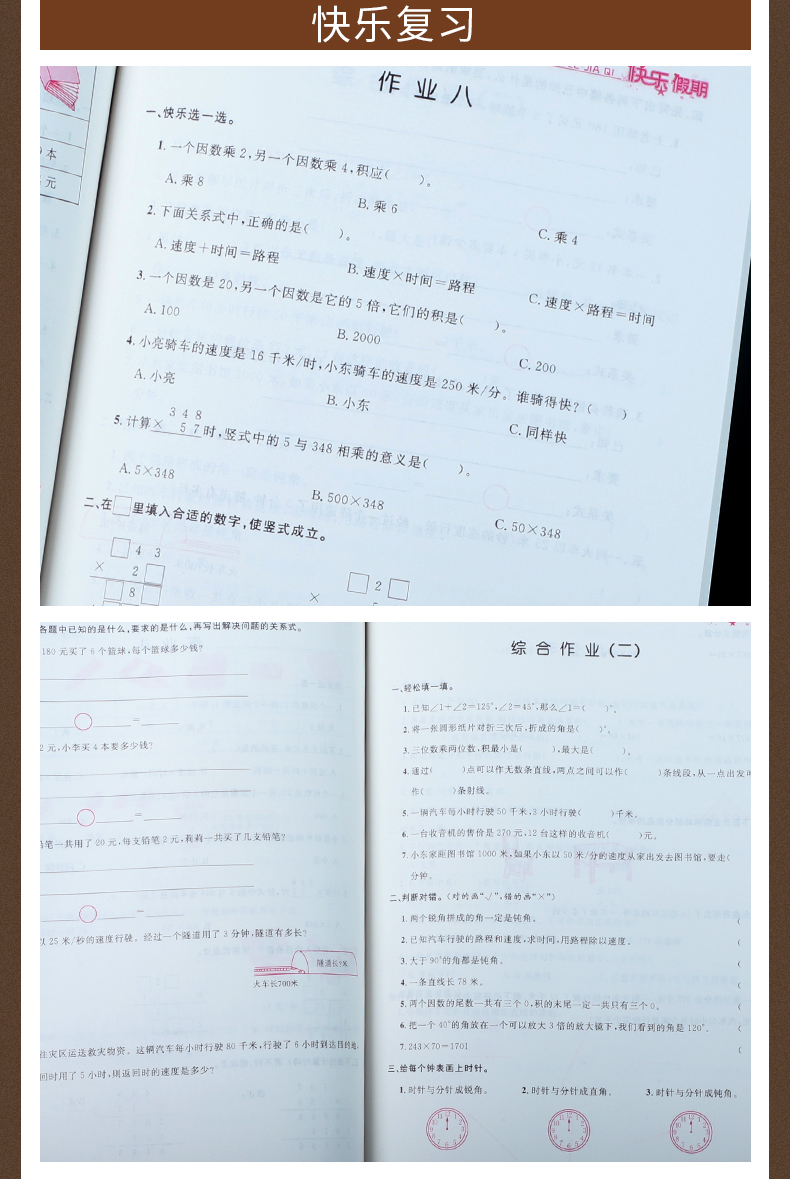 快乐复习
JIA QI 快乐假期
本
元
作业八
一、快乐选一选。
1. 一个因数乘2,另一个因数乘4,积应(  )。
A. 乘8 B. 乘6 C. 乘4
2. 下面关系式中,正确的是(  )。
A. 速度+时间=路程 B. 速度×时间=路程 C. 速度×路程=时间
3. 一个因数是20,另一个因数是它的5倍,它们的积是(  )。
A. 100 B. 2000 C. 200
4. 小亮骑车的速度是16千米/时,小东骑车的速度是250米/分。谁骑得快?(  )
A. 小亮 B. 小东 C. 同样快
3 4 8
5. 计算× 5 7时,竖式中的5与348相乘的意义是(  )。
A. 5×348 B. 500×348 C. 50×348
二、在□里填入合适的数字,使竖式成立。
□ 4 3
× 2 □
□ 2 □
□ 8 □
×
各题中已知的是什么,要求的是什么,再写出解决问题的关系式。
180元买了6个篮球,每个篮球多少钱?
○ =
2元,小李买4本要多少钱?
○ =
铅笔一共用了20元,每支铅笔2元,莉莉一共买了几支铅笔?
○ =
以25米/秒的速度行驶。经过一个隧道用了3分钟,隧道有多长?
隧道长?米
火车长700米
往灾区运送救灾物资。这辆汽车每小时行驶80千米,行驶了6小时到达目的地。
回时用了5小时,则返回时的速度是多少?
综合作业(二)
一、轻松填一填。
1. 已知∠1+∠2=125°,∠2=45°,那么∠1=(  )°。
2. 将一张圆形纸片对折三次后,折成的角是(  )°。
3. 三位数乘两位数,积最小是(  ),最大是(  )。
4. 通过(  )点可以作无数条直线,两点之间可以作(  )条线段,从一点出发可
作(  )条射线。
5. 一辆汽车每小时行驶50千米,3小时行驶(  )千米。
6. 一台收音机的售价是270元,12台这样的收音机(  )元。
7. 小东家距图书馆1000米,如果小东以50米/分的速度从家出发去图书馆,要走(
分钟。
二、判断对错。(对的画“√”,错的画“×”)
1. 两个锐角拼成的角一定是钝角。 (
2. 已知汽车行驶的路程和速度,求时间,用路程除以速度。 (
3. 大于90°的角都是钝角。 (
4. 一条直线长78米。 (
5. 两个因数的尾数一共有三个0,积的末尾一定一共只有三个0。 (
6. 把一个40°的角放在一个可以放大3倍的放大镜下,我们看到的角是120°。 (
7. 243×70=1701 (
三、给每个钟表画上时针。
1. 时针与分针成锐角。 2. 时针与分针成直角。 3. 时针与分针成钝角。